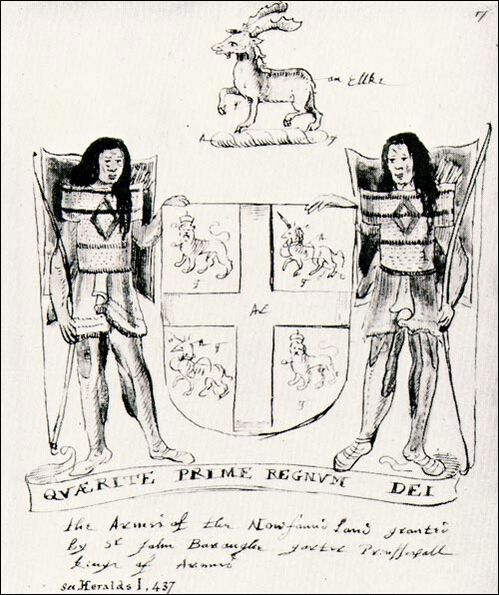 an Ellke
QVÆRITE PRIME REGNVM DEI
the Armes of the Nowfoun Land grante
By Sr John Borough garter Principall
kinge of Armes
see Heralds I. 437